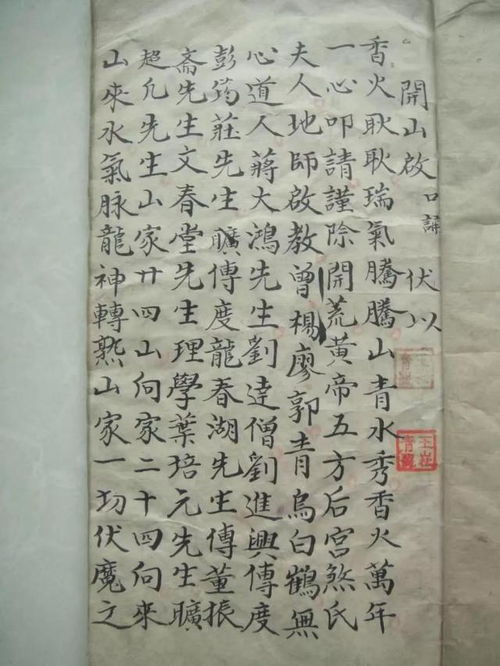 開山啟口詩 伏以
香火耿耿瑞氣騰騰山青水秀香火萬年
一心叩請謹除開荒黃帝五方后宮煞氏
夫人地師啟教曾楊廖郭青烏白鶴無
心道人蔣大鴻先生劉達僧劉進興傳度
彭筠莊先生曠傳度龍春湖先生傳董振
斋先生文春堂先生理學葉培元先生曠
超凡先生山家廿四山向家二十四向來
山來水氣脉龍神轉煞山家一切伏魔之